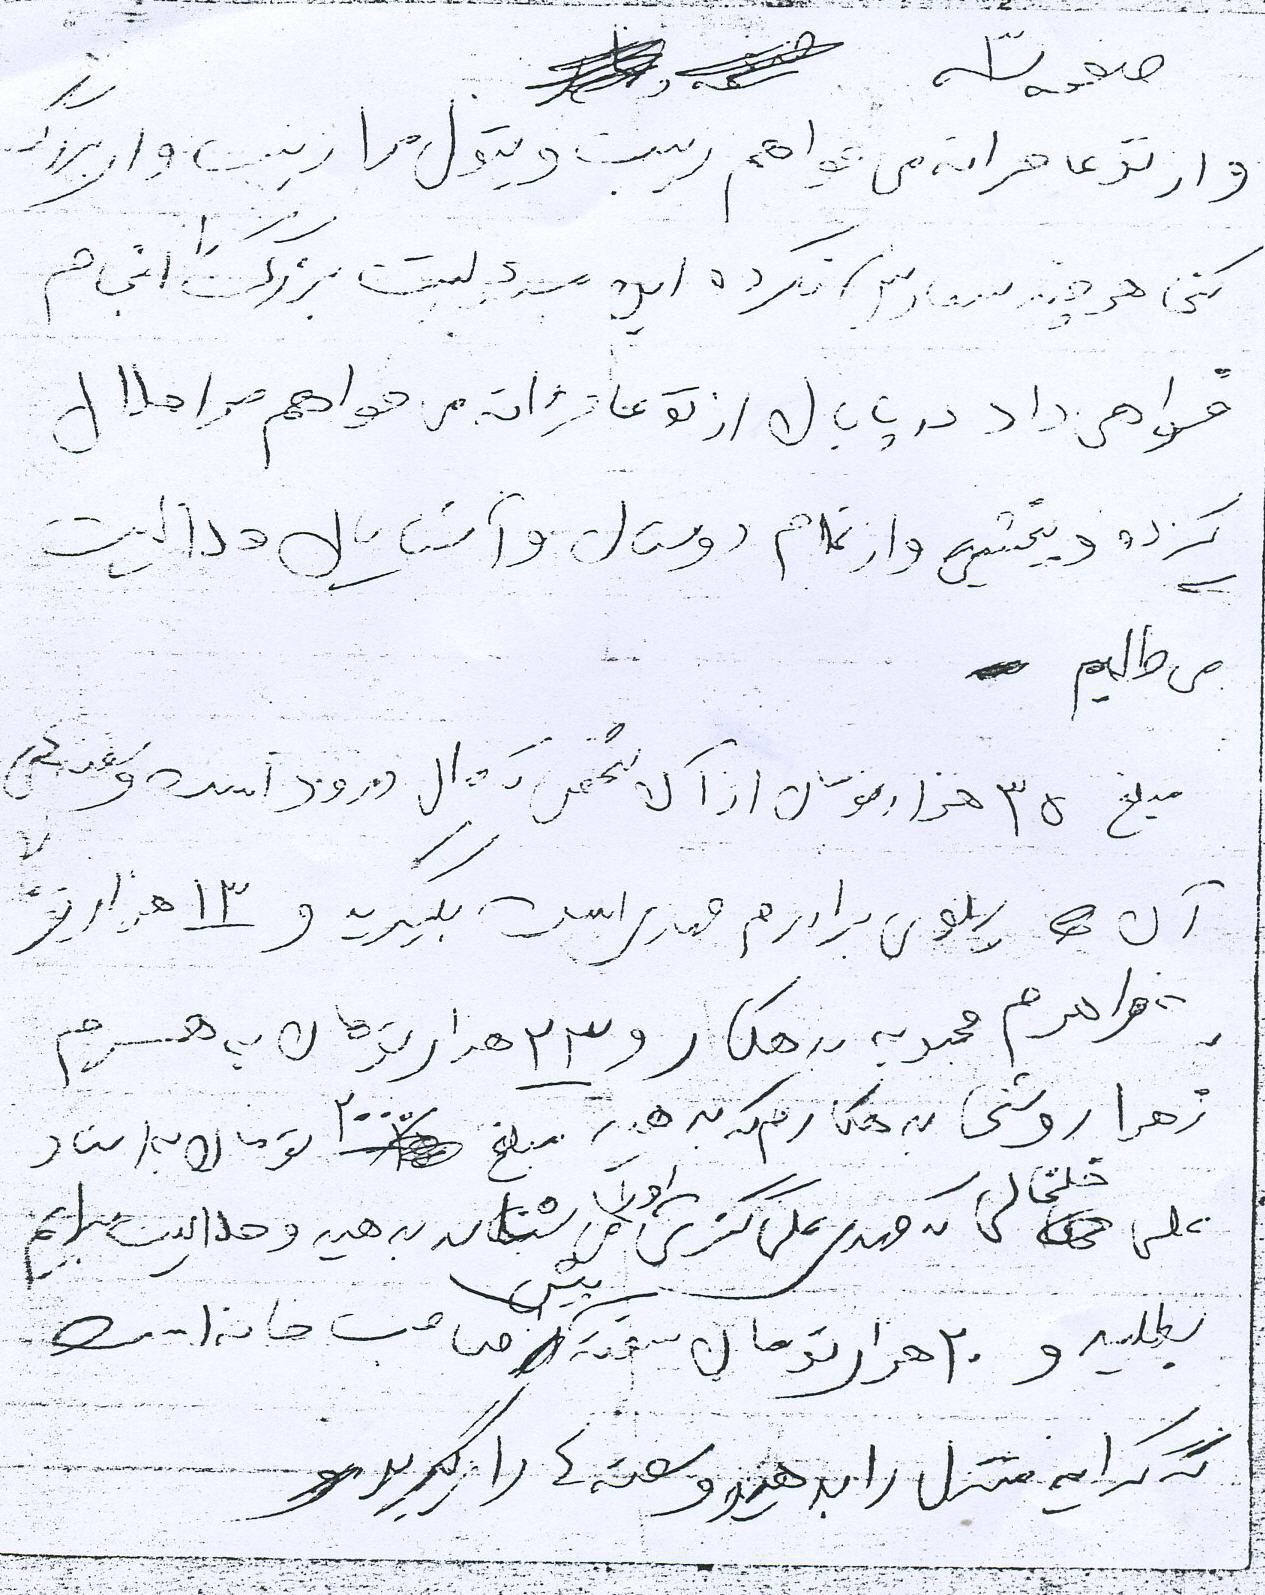 صفحه ۳
و از تو عاجزانه می خواهم زینب و بتول مرا زینب وار بزرگ
کنی هر چند سفارش نکرده این مسئولیت بزرگت را انجام
خواهی داد در پایان از تو عاجزانه می خواهم مرا حلال
کرده و ببخشی و از تمام دوستان و آشنایان حلالیت
می طلبم
مبلغ ۳۵ هزار تومان از آن شخصی که مال درود است و
آن پهلوی برادرم مهدی است بگیرید و ۱۳ هزار تو
به خواهرم محبوبه بدهکار و ۲۳ هزار تومان به همسرم
زهرا روشنی بدهکارم که بدهید مبلغ ۲۰۰۰ تومان به استاد
علی خلخالی که مهدی علی عسگری او را می شناسد بدهید و حلالیت برایم
بطلبید و ۲۰ هزار تومان سفته پیش صاحب خانه است
که کرایه منزل را بدهید و سفته را بگیرید